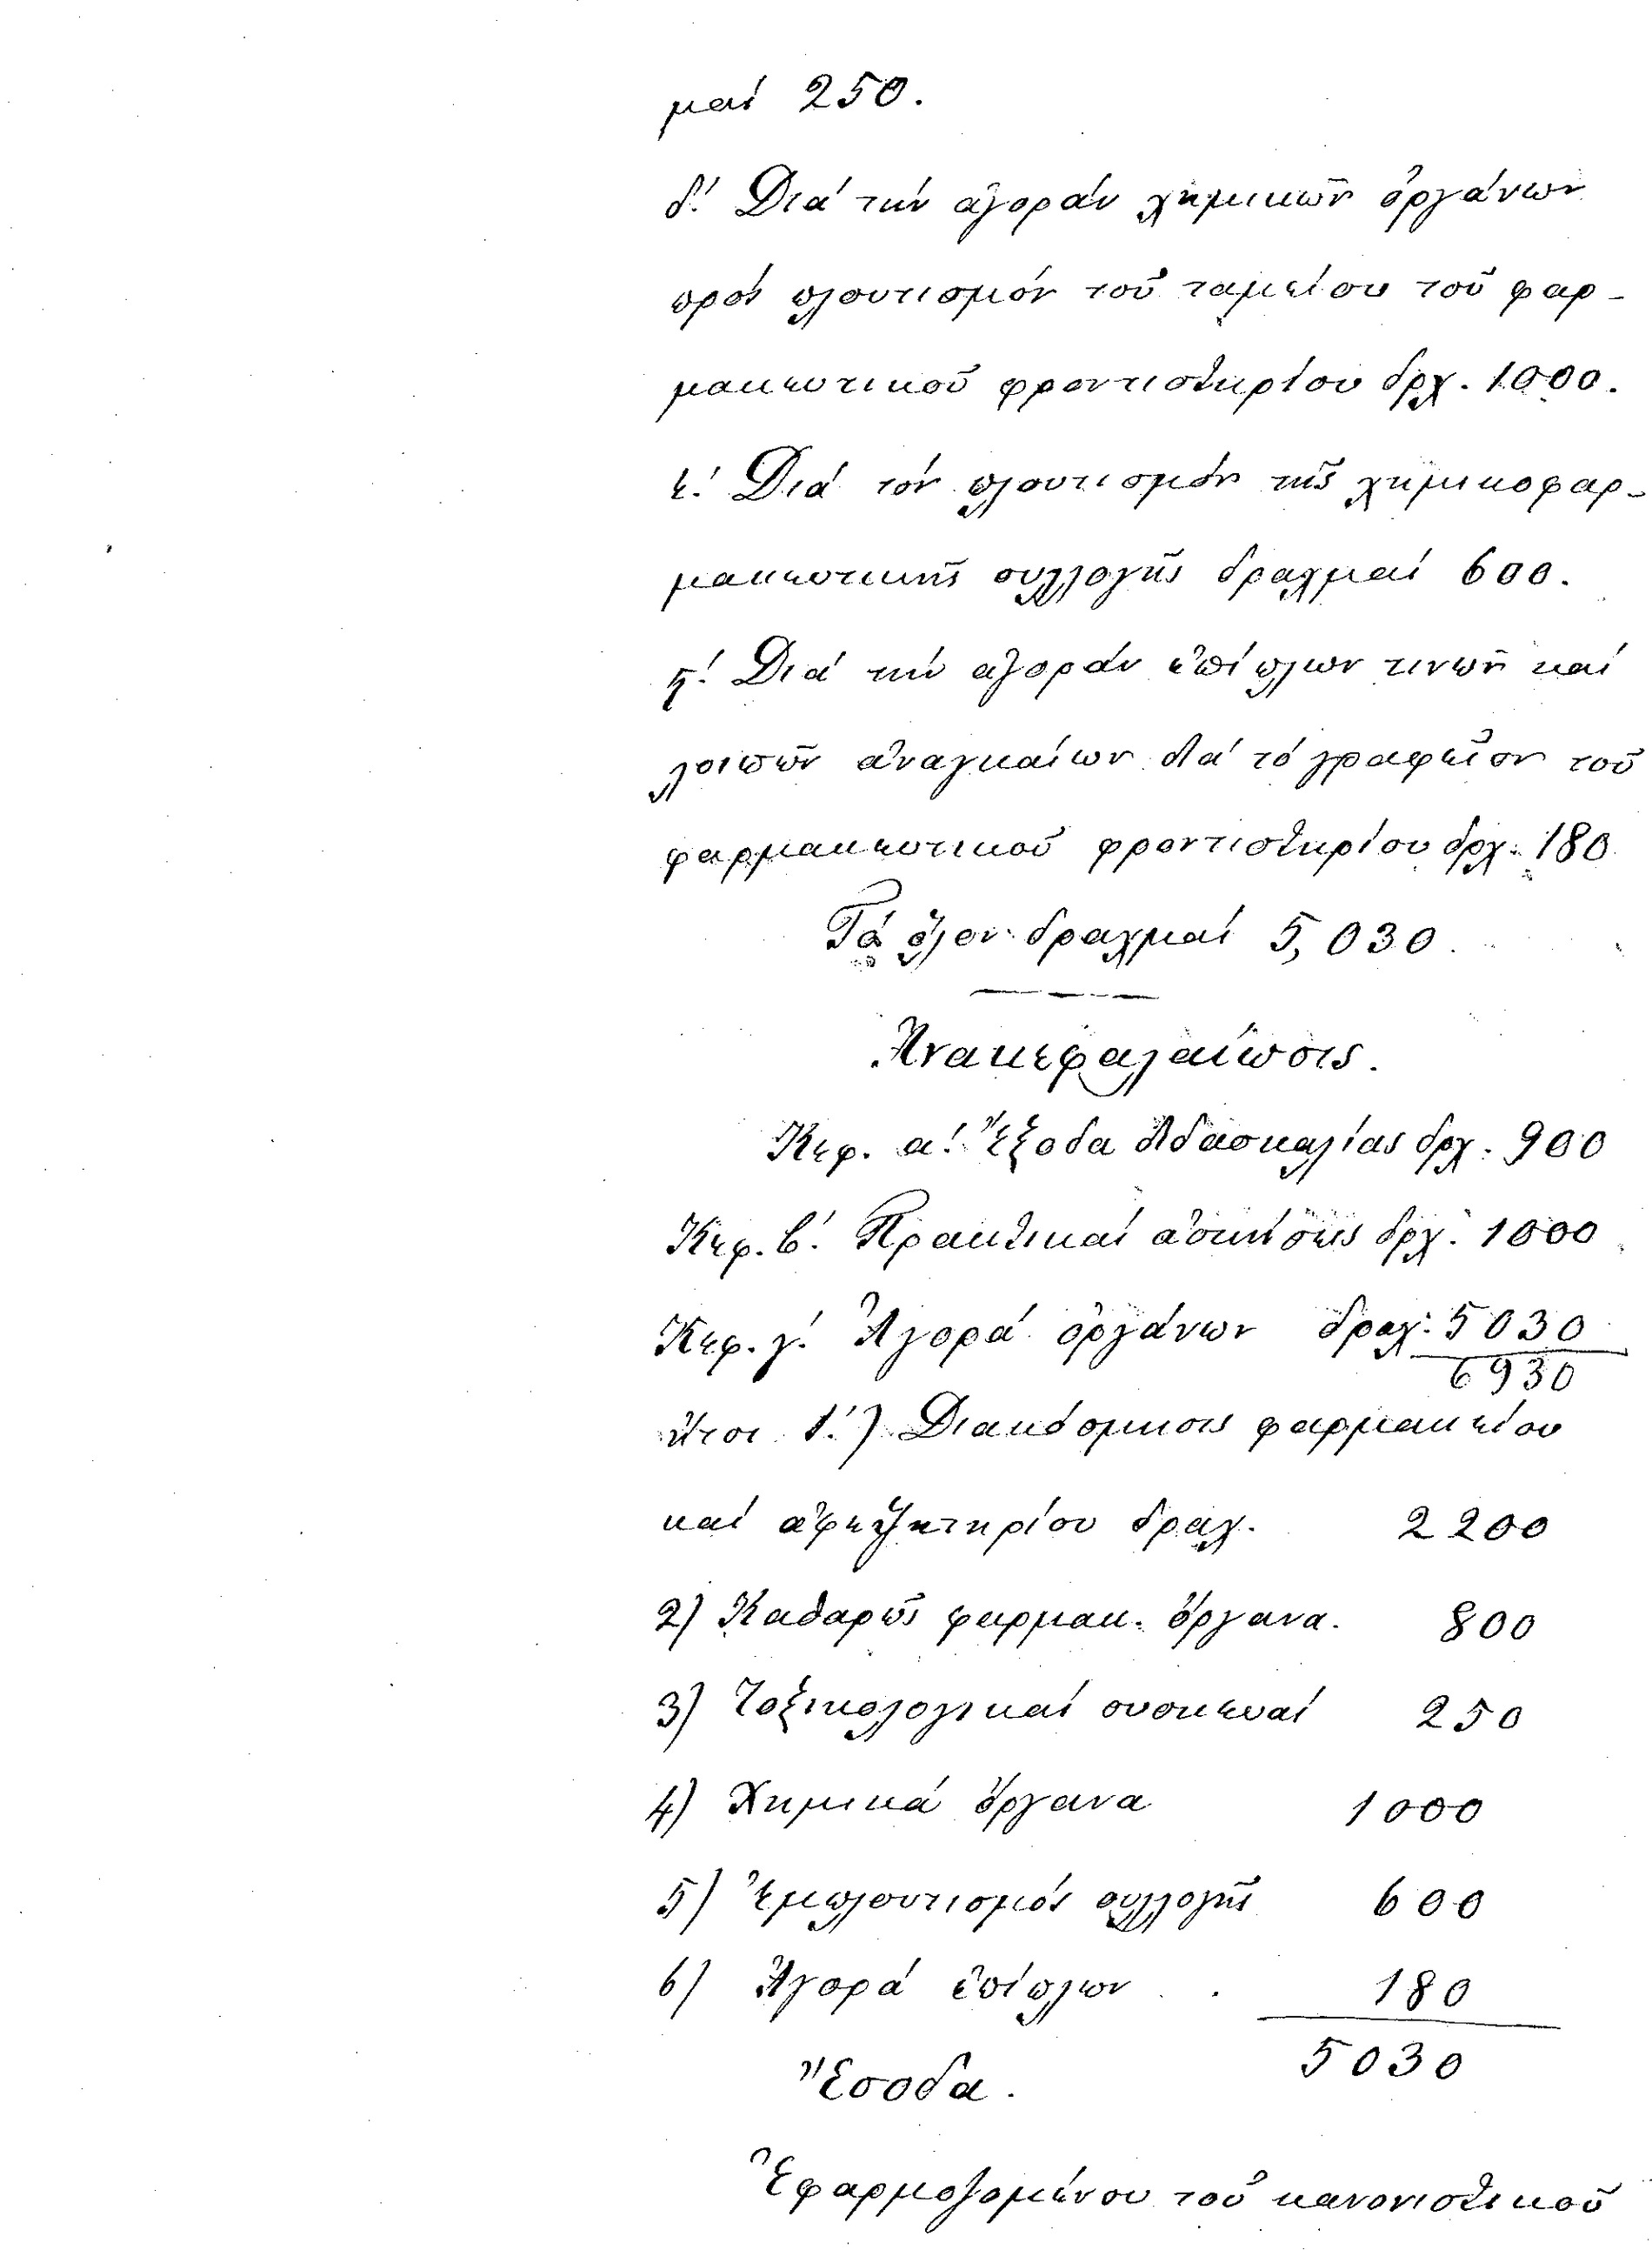 μαί 250.
δ'. Διά τήν ἀγοράν χημικῶν ὀργάνων
πρός πλουτισμόν τοῦ ταμείου τοῦ φαρ-
μακευτικοῦ φροντιστηρίου δρχ. 1000.
ε'. Διά τόν πλουτισμόν τῆς χημικοφαρ-
μακευτικῆς συλλογῆς δραχμαί 600.
ϛ'. Διά τήν ἀγοράν ἐπίπλων τινῶν καί
λοιπῶν ἀναγκαίων διά τό γραφεῖον τοῦ
φαρμακευτικοῦ φροντιστηρίου δρχ. 180
Τό ὅλον δραχμαί 5,030.
Ἀνακεφαλαίωσις.
Κεφ. α'. Ἔξοδα διδασκαλίας δρχ. 900
Κεφ. β'. Πρακτικαί ἀσκήσεις δρχ. 1000
Κεφ. γ'. Ἀγορά ὀργάνων δραχ. 5030
6930
ἤτοι 1.) Διακόσμησις φαρμακείου
καί ἀφεψητηρίου δραχ. 2200
2) Καθαρῶς φαρμακ. ὄργανα. 800
3) Τοξικολογικαί συσκευαί 250
4) Χημικά ὄργανα 1000
5) Ἐμπλουτισμός συλλογῆς 600
6) Ἀγορά ἐπίπλων . 180
5030
Ἔσοδα.
Ἐφαρμοζομένου τοῦ κανονιστικοῦ